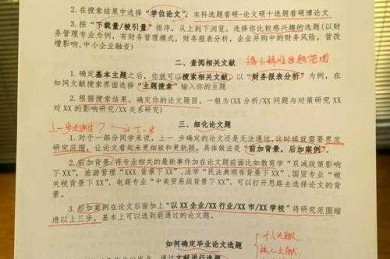 2. 在搜索结果中选择"学位论文"，本科选题看硕-论文硕士选题看硕博论文
3. 按"下载量/被引量"排序，从上到下浏览，选择你比较感兴趣的选题(以财
务管理专业为例，有财务管理模式，财务报表分析，企业并购中的财务风险，营改
增影响，中小企业融资)
二、查阅相关文献
1. 确定基本主题之后，你就可以搜索相关文献，以"财务报表分析"为例，在
知网文献搜索界面选择"主题搜索"输入你的主题
2. 根据搜索结果，确定你的论文题目，一般为(XX分析/XX问题与对策研究 XX
对XX的影响研究/XX关系研究)
三、细化论文题
1. 对于一部分同学来说，上一步确定的论文还是无法通过，这时候就需要界定
研究范围，让论文看起来更细致和更新颖，具体做法是"前加背景，后加案例"。
2. 前加背景：将专业相关的最新事件加在论文题前面比如教育学"双减政策影响
下XX"，旅游管理"XXX背景下XX"，法学"民法典颁布背景下XX"，国贸专业"碳
关税背景下XX"，电商专业"中美贸易战背景下XX"，可以打开思路去选择论文的背
景。
3. 后加案例在论文后面加上"以XX企业/XX行业/XX市/XX学校"将研究范围缩
进以上三步，基本上可以选到能通过的论文题。
如何确定毕业论文选题